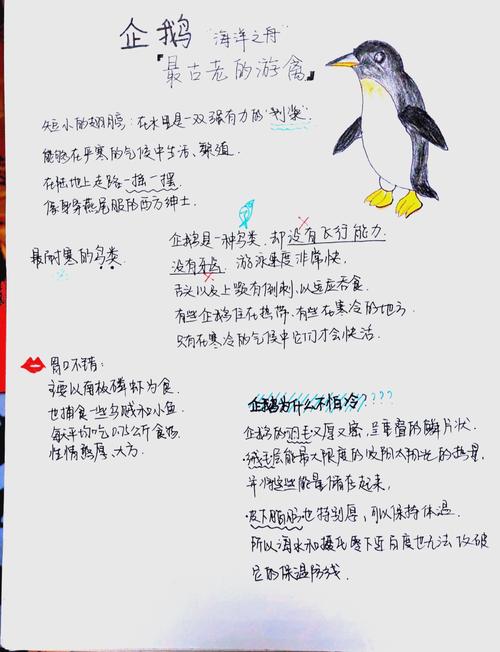 企鹅 "海洋之舟"
「最古老的游禽」
短小的翅膀：在水里是一双强有力的"划桨".
能够在严寒的气候中生活、繁殖.
在陆地上走路一摇一摆.
像身穿燕尾服的西方绅士
最耐寒的鸟类
企鹅是一种鸟类，却没有飞行能力.
没有牙齿. 游泳速度非常快.
舌头以及上颚有倒刺，以适应吞食.
有些企鹅住在热带，有些在寒冷的地方
只有在寒冷的气候中它们才会快活.
胃口不错：
主要以南极磷虾为食.
也捕食一些乌贼和小鱼
每天平均吃0.75公斤食物.
性情憨厚、大方.
企鹅为什么不怕冷？???
企鹅的羽毛又厚又密，呈重叠的鳞片状.
绒毛层能最大限度的吸收太阳光的热量.
并将这些能量储存起来.
皮下脂肪也特别厚，可以保持体温.
所以海水和摄氏零下近百度也无法攻破
它的保温防线.